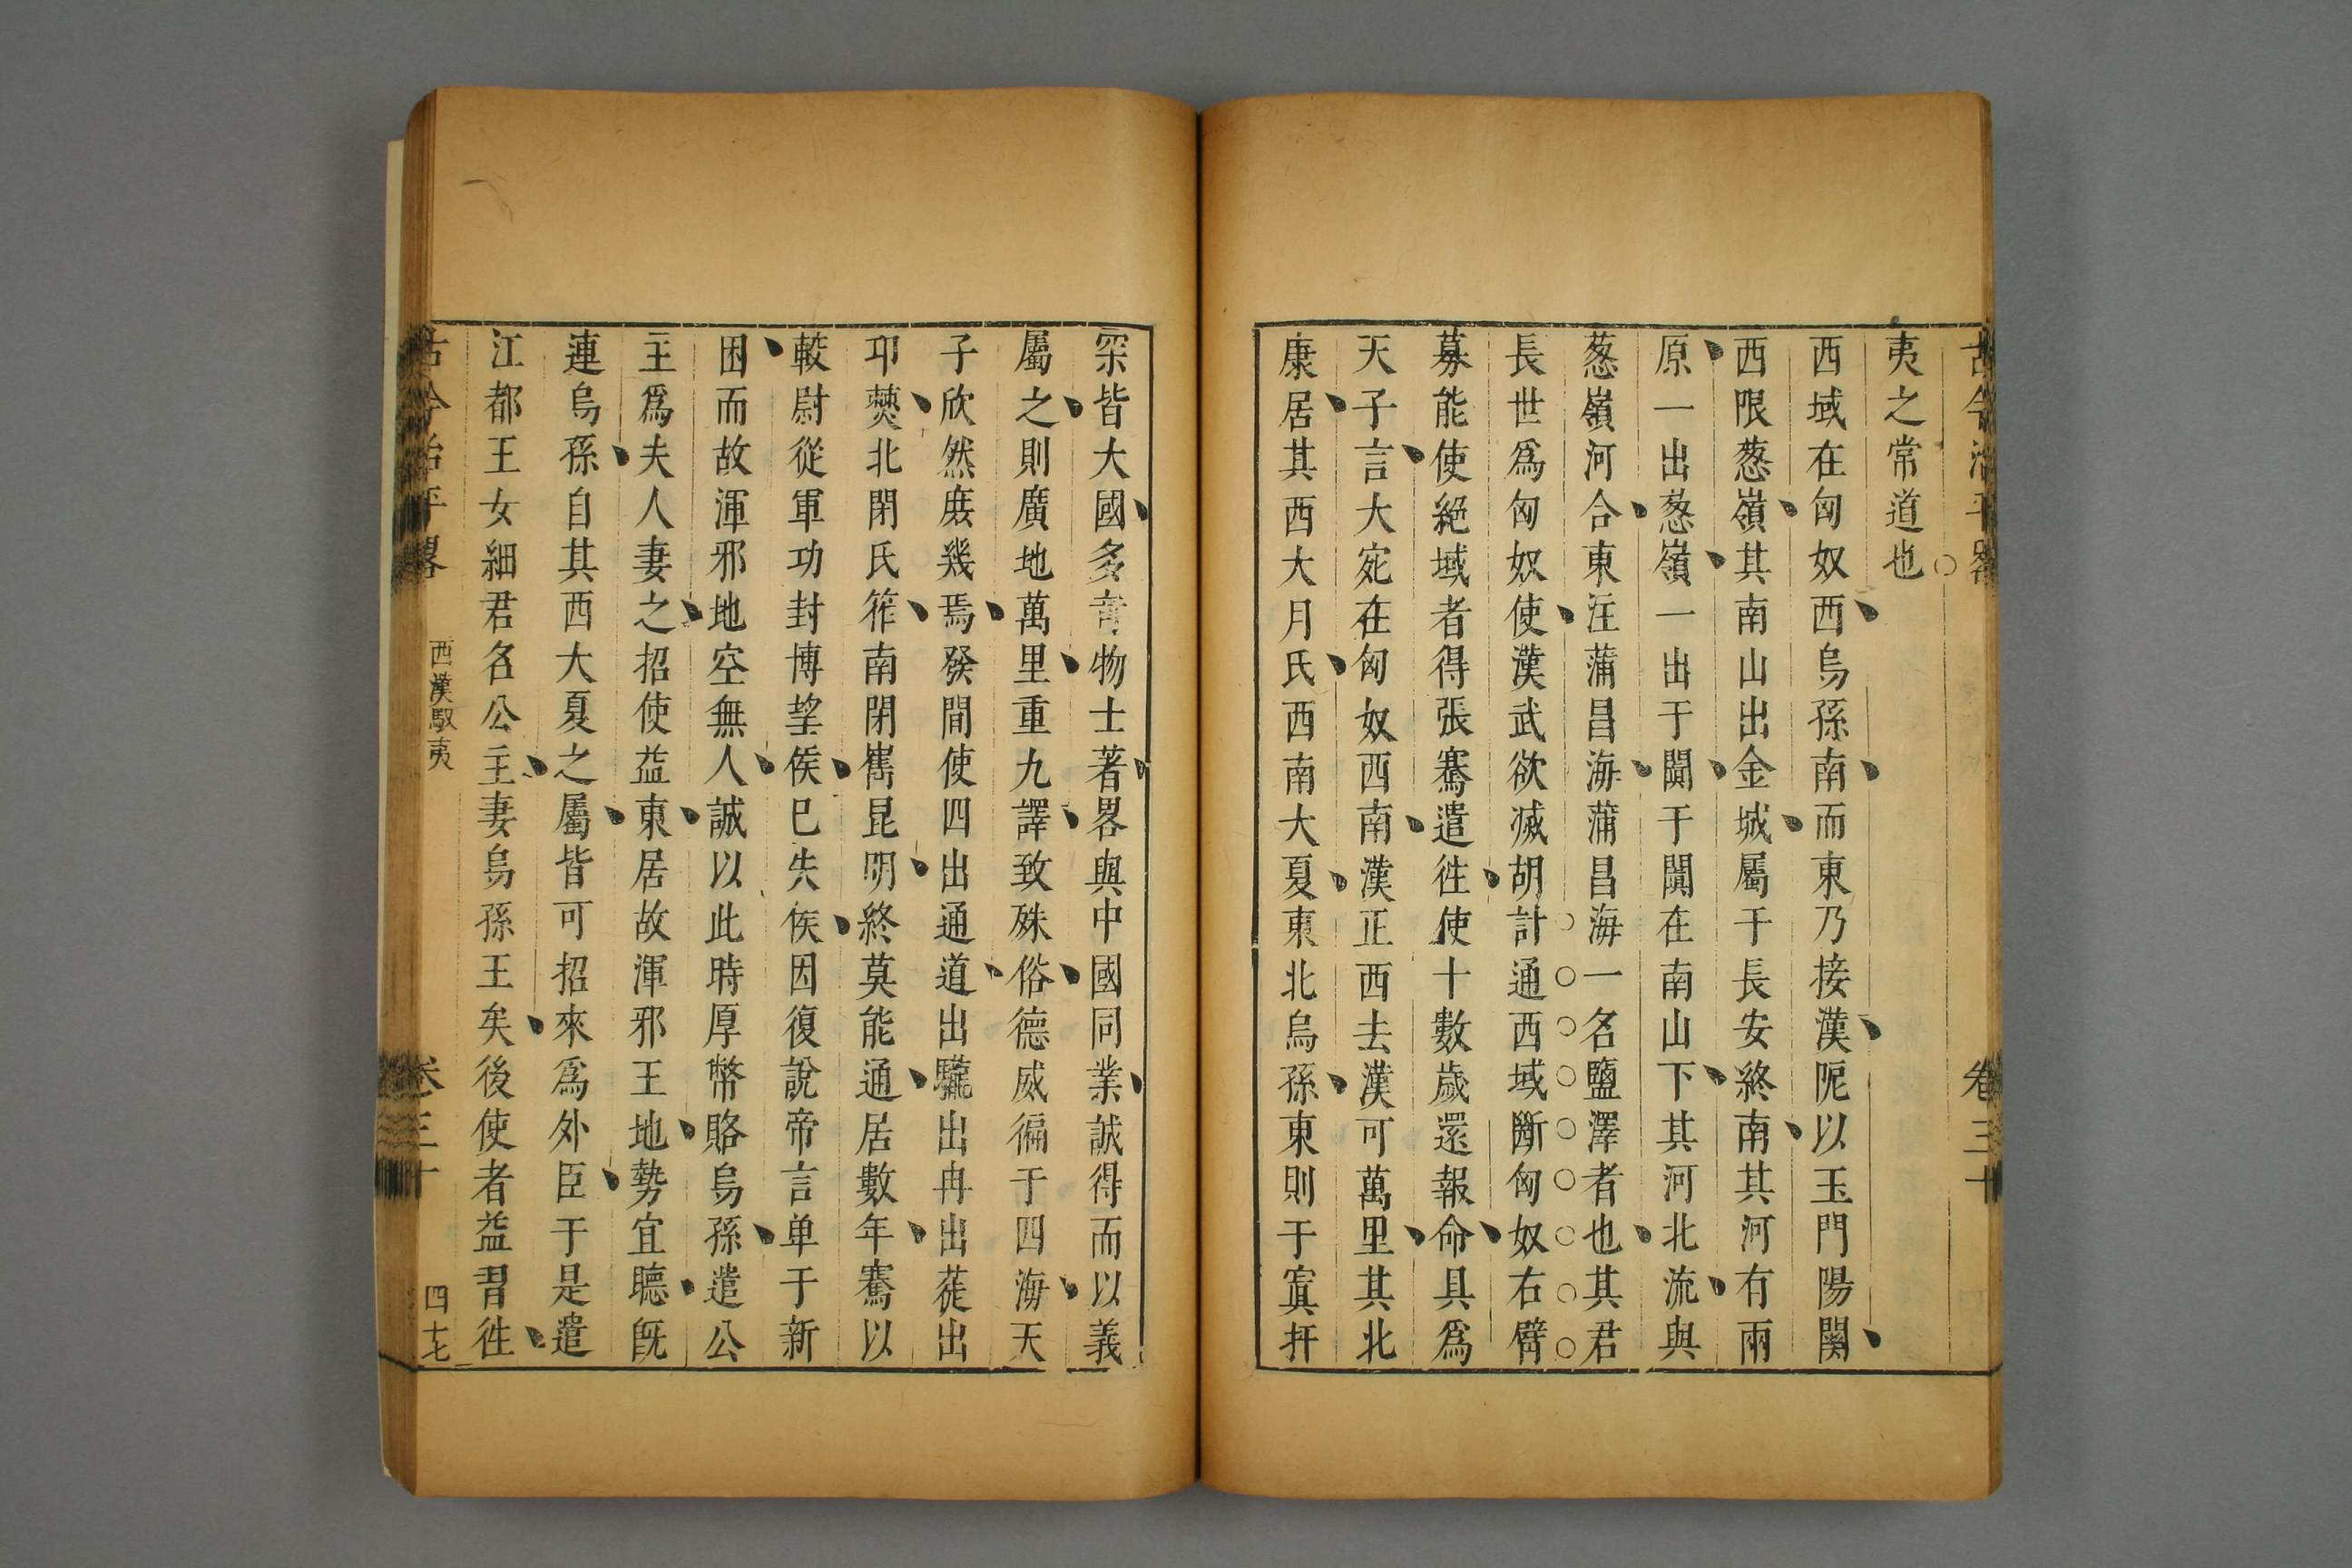 古今治平畧 卷三十
夷之常道也○
西域在匈奴西烏孫南而東乃接漢阨以玉門陽關
西限葱嶺其南山出金城屬于長安終南其河有兩
原一出葱嶺一出于闐于闐在南山下其河北流與
葱嶺河合東注蒲昌海蒲昌海一名鹽澤者也其君
長世爲匈奴使漢武欲滅胡計通西域斷匈奴右臂
募能使絕域者得張騫遣徃使十數歲還報命具爲
天子言大宛在匈奴西南漢正西去漢可萬里其北
康居其西大月氏西南大夏東北烏孫東則于寘扜
罙皆大國多竒物士著畧與中國同業誠得而以義
屬之則廣地萬里重九譯致殊俗德威徧于四海天
子欣然庻幾焉發間使四出通道出駹出冉出蓰出
卭僰北閉氏筰南閉嶲昆明終莫能通居數年騫以
較尉從軍功封博望侯巳失侯因復說帝言单于新
困而故渾邪地空無人誠以此時厚幣賂烏孫遣公
主爲夫人妻之招使益東居故渾邪王地勢宜聽旣
連烏孫自其西大夏之屬皆可招來爲外臣于是遣
江都王女細君名公主妻烏孫王矣後使者益習徃
古今治平畧 西漢馭夷 卷三十 四十七